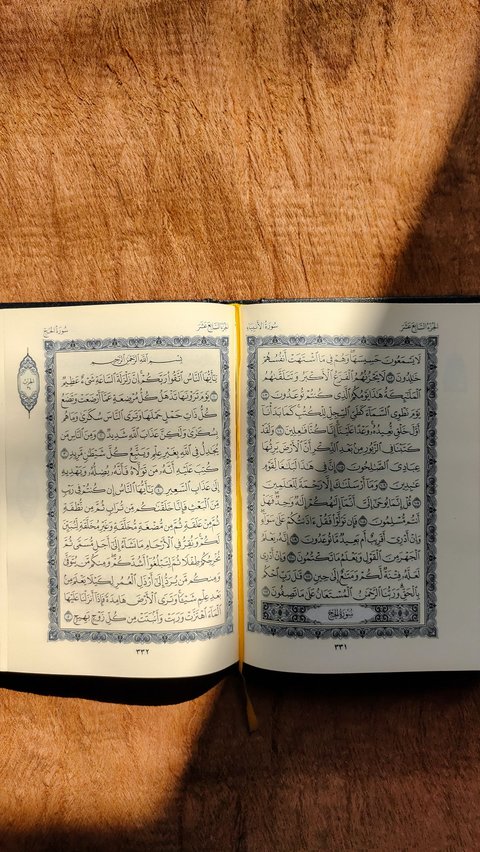 الجزء السابع عشر
سورة الأنبياء
لَا يَسْمَعُونَ حَسِيسَهَا وَهُمْ فِى مَا ٱشْتَهَتْ أَنفُسُهُمْ
خَٰلِدُونَ ١٠٢ لَا يَحْزُنُهُمُ ٱلْفَزَعُ ٱلْأَكْبَرُ وَتَتَلَقَّىٰهُمُ
ٱلْمَلَٰٓئِكَةُ هَٰذَا يَوْمُكُمُ ٱلَّذِى كُنتُمْ تُوعَدُونَ ١٠٣
يَوْمَ نَطْوِى ٱلسَّمَآءَ كَطَىِّ ٱلسِّجِلِّ لِلْكُتُبِ كَمَا بَدَأْنَآ
أَوَّلَ خَلْقٍ نُّعِيدُهُۥ وَعْدًا عَلَيْنَآ إِنَّا كُنَّا فَٰعِلِينَ ١٠٤ وَلَقَدْ
كَتَبْنَا فِى ٱلزَّبُورِ مِنۢ بَعْدِ ٱلذِّكْرِ أَنَّ ٱلْأَرْضَ يَرِثُهَا
عِبَادِىَ ٱلصَّٰلِحُونَ ١٠٥ إِنَّ فِى هَٰذَا لَبَلَٰغًا لِّقَوْمٍ
عَٰبِدِينَ ١٠٦ وَمَآ أَرْسَلْنَٰكَ إِلَّا رَحْمَةً لِّلْعَٰلَمِينَ
١٠٧ قُلْ إِنَّمَا يُوحَىٰٓ إِلَىَّ أَنَّمَآ إِلَٰهُكُمْ إِلَٰهٌ وَٰحِدٌ فَهَلْ
أَنتُم مُّسْلِمُونَ ١٠٨ فَإِن تَوَلَّوْا۟ فَقُلْ ءَاذَنتُكُمْ عَلَىٰ سَوَآءٍ
وَإِنْ أَدْرِىٓ أَقَرِيبٌ أَم بَعِيدٌ مَّا تُوعَدُونَ ١٠٩ إِنَّهُۥ يَعْلَمُ
ٱلْجَهْرَ مِنَ ٱلْقَوْلِ وَيَعْلَمُ مَا تَكْتُمُونَ ١١٠ وَإِنْ أَدْرِى
لَعَلَّهُۥ فِتْنَةٌ لَّكُمْ وَمَتَٰعٌ إِلَىٰ حِينٍ ١١١ قَٰلَ رَبِّ ٱحْكُم
بِٱلْحَقِّ وَرَبُّنَا ٱلرَّحْمَٰنُ ٱلْمُسْتَعَانُ عَلَىٰ مَا تَصِفُونَ ١١٢
سورة الحج
٣٣١
الجزء السابع عشر
سورة الحج
بِسْمِ ٱللَّهِ ٱلرَّحْمَٰنِ ٱلرَّحِيمِ
يَٰٓأَيُّهَا ٱلنَّاسُ ٱتَّقُوا۟ رَبَّكُمْ إِنَّ زَلْزَلَةَ ٱلسَّاعَةِ شَىْءٌ عَظِيمٌ
١ يَوْمَ تَرَوْنَهَا تَذْهَلُ كُلُّ مُرْضِعَةٍ عَمَّآ أَرْضَعَتْ وَتَضَعُ
كُلُّ ذَاتِ حَمْلٍ حَمْلَهَا وَتَرَى ٱلنَّاسَ سُكَٰرَىٰ وَمَا هُم
بِسُكَٰرَىٰ وَلَٰكِنَّ عَذَابَ ٱللَّهِ شَدِيدٌ ٢ وَمِنَ ٱلنَّاسِ مَن
يُجَٰدِلُ فِى ٱللَّهِ بِغَيْرِ عِلْمٍ وَيَتَّبِعُ كُلَّ شَيْطَٰنٍ مَّرِيدٍ ٣
كُتِبَ عَلَيْهِ أَنَّهُۥ مَن تَوَلَّاهُ فَأَنَّهُۥ يُضِلُّهُۥ وَيَهْدِيهِ
إِلَىٰ عَذَابِ ٱلسَّعِيرِ ٤ يَٰٓأَيُّهَا ٱلنَّاسُ إِن كُنتُمْ فِى رَيْبٍ
مِّنَ ٱلْبَعْثِ فَإِنَّا خَلَقْنَٰكُم مِّن تُرَابٍ ثُمَّ مِن نُّطْفَةٍ
ثُمَّ مِنْ عَلَقَةٍ ثُمَّ مِن مُّضْغَةٍ مُّخَلَّقَةٍ وَغَيْرِ مُخَلَّقَةٍ لِّنُبَيِّنَ
لَكُمْ وَنُقِرُّ فِى ٱلْأَرْحَامِ مَا نَشَآءُ إِلَىٰٓ أَجَلٍ مُّسَمًّى ثُمَّ
نُخْرِجُكُمْ طِفْلًا ثُمَّ لِتَبْلُغُوٓا۟ أَشُدَّكُمْ وَمِنكُم مَّن يُتَوَفَّىٰ
وَمِنكُم مَّن يُرَدُّ إِلَىٰٓ أَرْذَلِ ٱلْعُمُرِ لِكَيْلَا يَعْلَمَ مِنۢ
بَعْدِ عِلْمٍ شَيْـًٔا وَتَرَى ٱلْأَرْضَ هَامِدَةً فَإِذَآ أَنزَلْنَا عَلَيْهَا
ٱلْمَآءَ ٱهْتَزَّتْ وَرَبَتْ وَأَنۢبَتَتْ مِن كُلِّ زَوْجٍۭ بَهِيجٍ ٥
٣٣٢